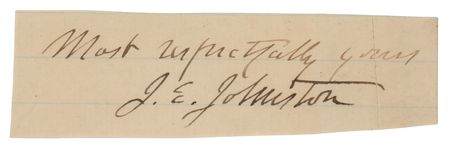 Most respectfully yours
J. E. Johnston